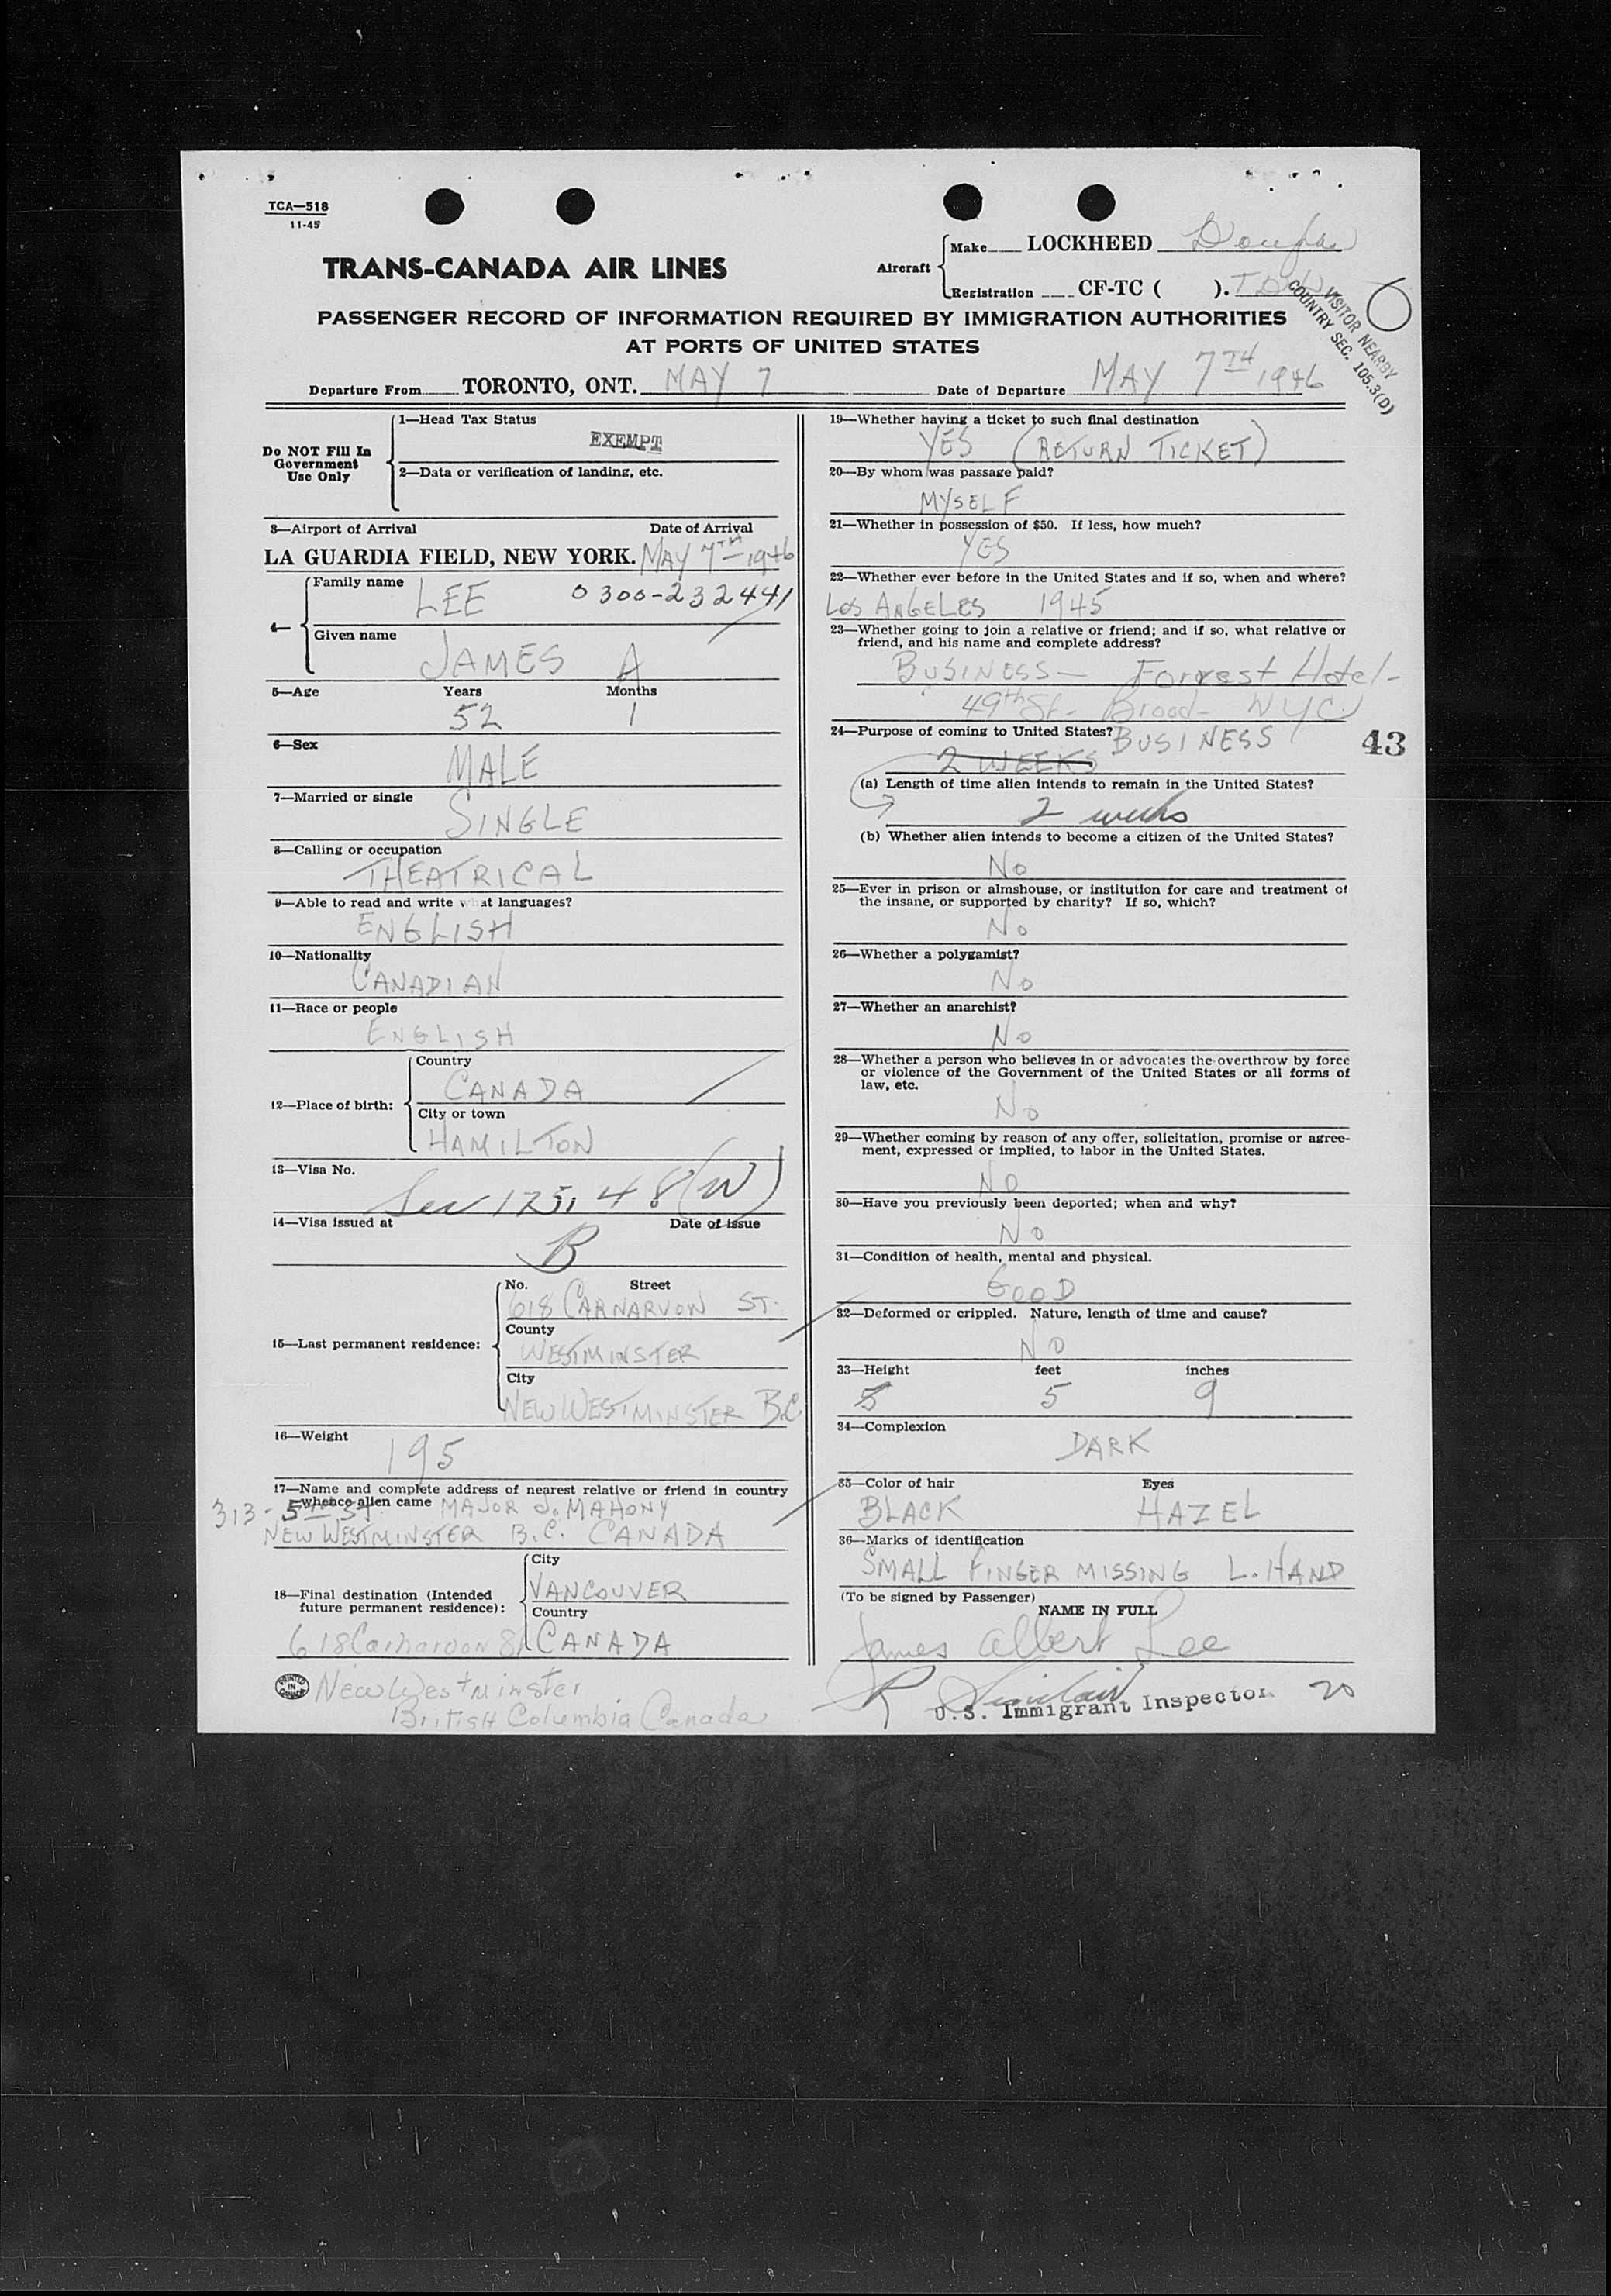 TCA—518
11-45
TRANS-CANADA AIR LINES
Aircraft
Make LOCKHEED Douglas
Registration CF-TC ( ).
VISITOR NEARBY
COUNTRY SEC. 105.3(D)
PASSENGER RECORD OF INFORMATION REQUIRED BY IMMIGRATION AUTHORITIES
AT PORTS OF UNITED STATES
Departure From TORONTO, ONT. MAY 7
Date of Departure MAY 7TH 1946
Do NOT Fill In
Government
Use Only
1—Head Tax Status
EXEMPT
2—Data or verification of landing, etc.
3—Airport of Arrival Date of Arrival
LA GUARDIA FIELD, NEW YORK. MAY 7TH 1946
4—
Family name LEE 0300-232441
Given name
JAMES A
5—Age Years Months
52 1
6—Sex
MALE
7—Married or single
SINGLE
8—Calling or occupation
THEATRICAL
9—Able to read and write what languages?
ENGLISH
10—Nationality
CANADIAN
11—Race or people
ENGLISH
12—Place of birth:
Country
CANADA
City or town
HAMILTON
13—Visa No.
Sec 175.48(W)
14—Visa issued at Date of issue
B
15—Last permanent residence:
No. Street
618 CARNARVON ST.
County
WESTMINSTER
City
NEW WESTMINSTER B.C.
16—Weight
195
17—Name and complete address of nearest relative or friend in country
whence alien came MAJOR J. MAHONY
313 - 5TH ST.
NEW WESTMINSTER B.C. CANADA
18—Final destination (Intended
future permanent residence):
City
VANCOUVER
Country
CANADA
618 Carnarvon St
PRINTED IN CANADA
New Westminster
British Columbia Canada
19—Whether having a ticket to such final destination
YES (RETURN TICKET)
20—By whom was passage paid?
MYSELF
21—Whether in possession of $50. If less, how much?
YES
22—Whether ever before in the United States and if so, when and where?
LOS ANGELES 1945
23—Whether going to join a relative or friend; and if so, what relative or
friend, and his name and complete address?
BUSINESS — Forrest Hotel -
49th St - Broad - NYC
24—Purpose of coming to United States? BUSINESS
2 WEEKS
43
(a) Length of time alien intends to remain in the United States?
2 weeks
(b) Whether alien intends to become a citizen of the United States?
No
25—Ever in prison or almshouse, or institution for care and treatment of
the insane, or supported by charity? If so, which?
No
26—Whether a polygamist?
No
27—Whether an anarchist?
No
28—Whether a person who believes in or advocates the overthrow by force
or violence of the Government of the United States or all forms of
law, etc.
No
29—Whether coming by reason of any offer, solicitation, promise or agree-
ment, expressed or implied, to labor in the United States.
NO
30—Have you previously been deported; when and why?
NO
31—Condition of health, mental and physical.
GOOD
32—Deformed or crippled. Nature, length of time and cause?
NO
33—Height feet inches
5 5 9
34—Complexion
DARK
35—Color of hair Eyes
BLACK HAZEL
36—Marks of identification
SMALL FINGER MISSING L. HAND
(To be signed by Passenger)
NAME IN FULL
James Albert Lee
R Sinclair
U.S. Immigrant Inspector 20